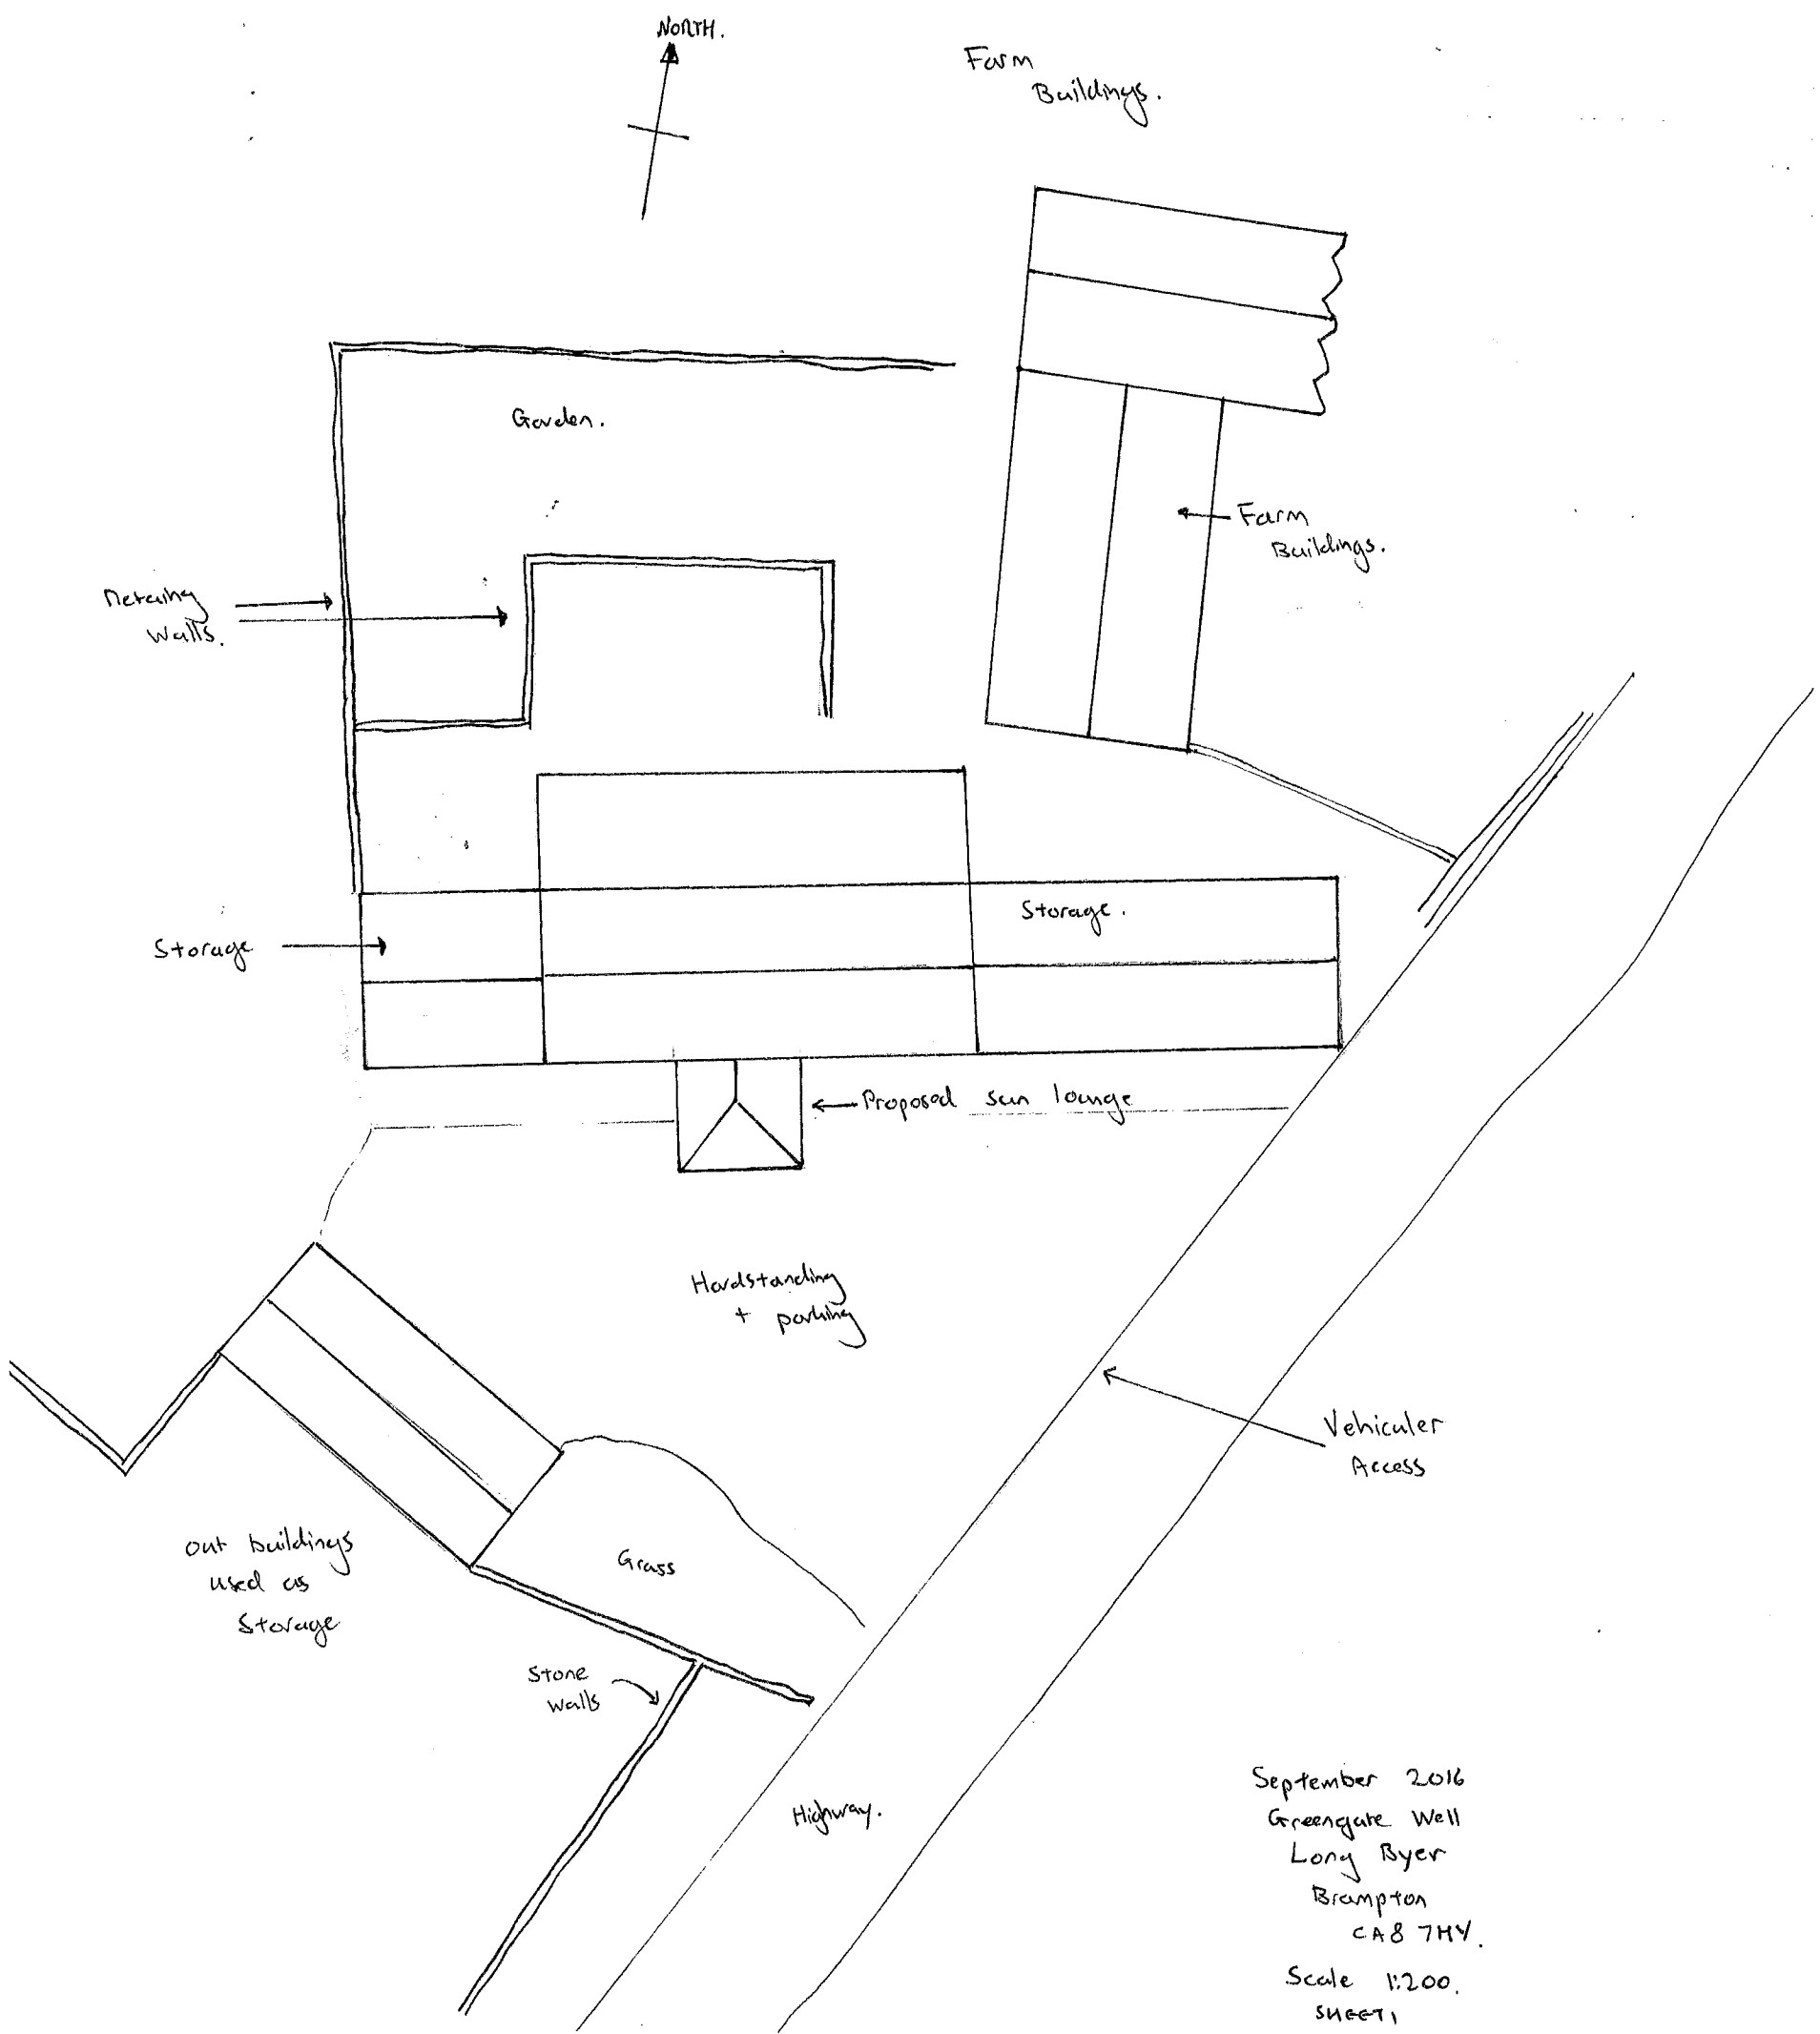 NORTH.
Farm
Buildings.
Garden.
Farm
Buildings.
Retaing
Walls.
Storage.
Storage
Proposed sun lounge
Hardstanding
+ parking
Vehiculer
Access
Out buildings
used as
Storage
Grass
Stone
Walls
Highway.
September 2016
Greengate Well
Long Byer
Brampton
CA8 7HY.
Scale 1:200.
SHEET 1